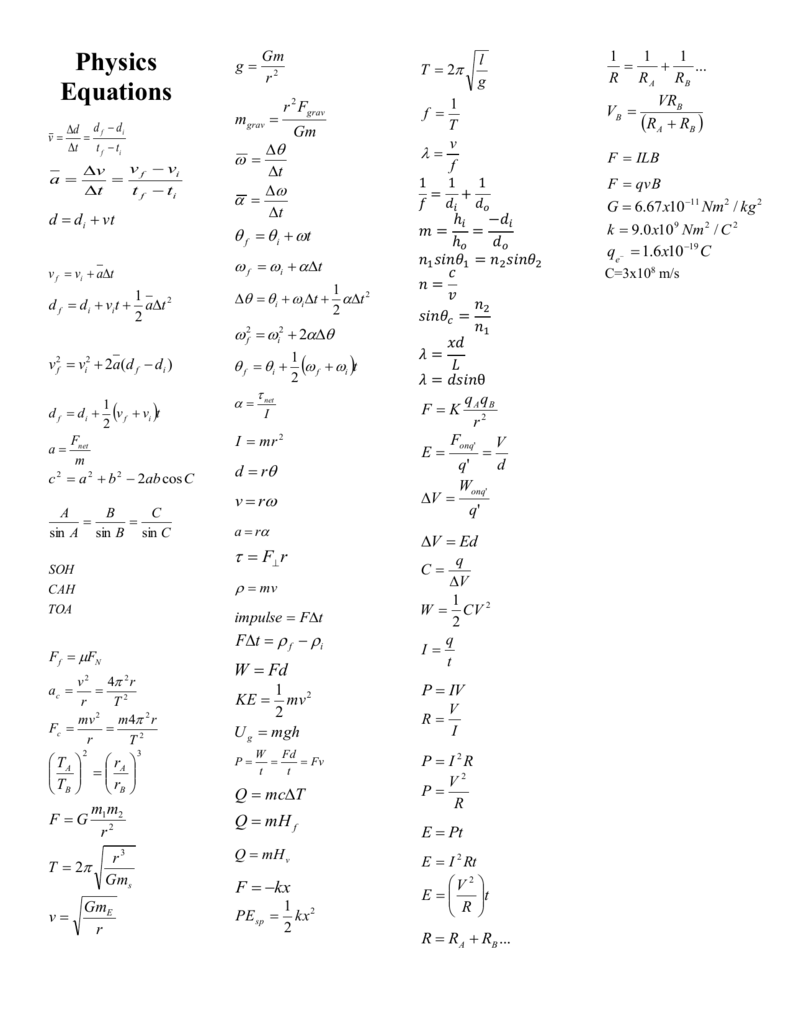 Physics
Equations
v̄ = Δd/Δt = (d_f − d_i)/(t_f − t_i)
a̅ = Δv/Δt = (v_f − v_i)/(t_f − t_i)
d = d_i + vt
v_f = v_i + a̅Δt
d_f = d_i + v_i t + 1/2 a̅Δt²
v_f² = v_i² + 2a̅(d_f − d_i)
d_f = d_i + 1/2 (v_f + v_i)t
a = F_net/m
c² = a² + b² − 2ab cos C
A/sin A = B/sin B = C/sin C
SOH
CAH
TOA
F_f = μF_N
a_c = v²/r = 4π²r/T²
F_c = mv²/r = m4π²r/T²
(T_A/T_B)² = (r_A/r_B)³
F = G m₁m₂/r²
T = 2π √(r³/Gm_s)
v = √(Gm_E/r)
g = Gm/r²
m_grav = r²F_grav/Gm
ω̅ = Δθ/Δt
α̅ = Δω/Δt
θ_f = θ_i + ωt
ω_f = ω_i + αΔt
Δθ = θ_i + ω_iΔt + 1/2 αΔt²
ω_f² = ω_i² + 2αΔθ
θ_f = θ_i + 1/2 (ω_f + ω_i)t
α = τ_net/I
I = mr²
d = rθ
v = rω
a = rα
τ = F_⊥r
ρ = mv
impulse = FΔt
FΔt = ρ_f − ρ_i
W = Fd
KE = 1/2 mv²
U_g = mgh
P = W/t = Fd/t = Fv
Q = mcΔT
Q = mH_f
Q = mH_v
F = −kx
PE_sp = 1/2 kx²
T = 2π √(l/g)
f = 1/T
λ = v/f
1/f = 1/d_i + 1/d_o
m = h_i/h_o = −d_i/d_o
n₁sinθ₁ = n₂sinθ₂
n = c/v
sinθ_c = n₂/n₁
λ = xd/L
λ = dsinθ
F = K q_A q_B/r²
E = F_onq'/q' = V/d
ΔV = W_onq'/q'
ΔV = Ed
C = q/ΔV
W = 1/2 CV²
I = q/t
P = IV
R = V/I
P = I²R
P = V²/R
E = Pt
E = I²Rt
E = (V²/R)t
R = R_A + R_B...
1/R = 1/R_A + 1/R_B ...
V_B = VR_B/(R_A + R_B)
F = ILB
F = qvB
G = 6.67x10⁻¹¹ Nm² / kg²
k = 9.0x10⁹ Nm² / C²
q_e⁻ = 1.6x10⁻¹⁹ C
C=3x10⁸ m/s